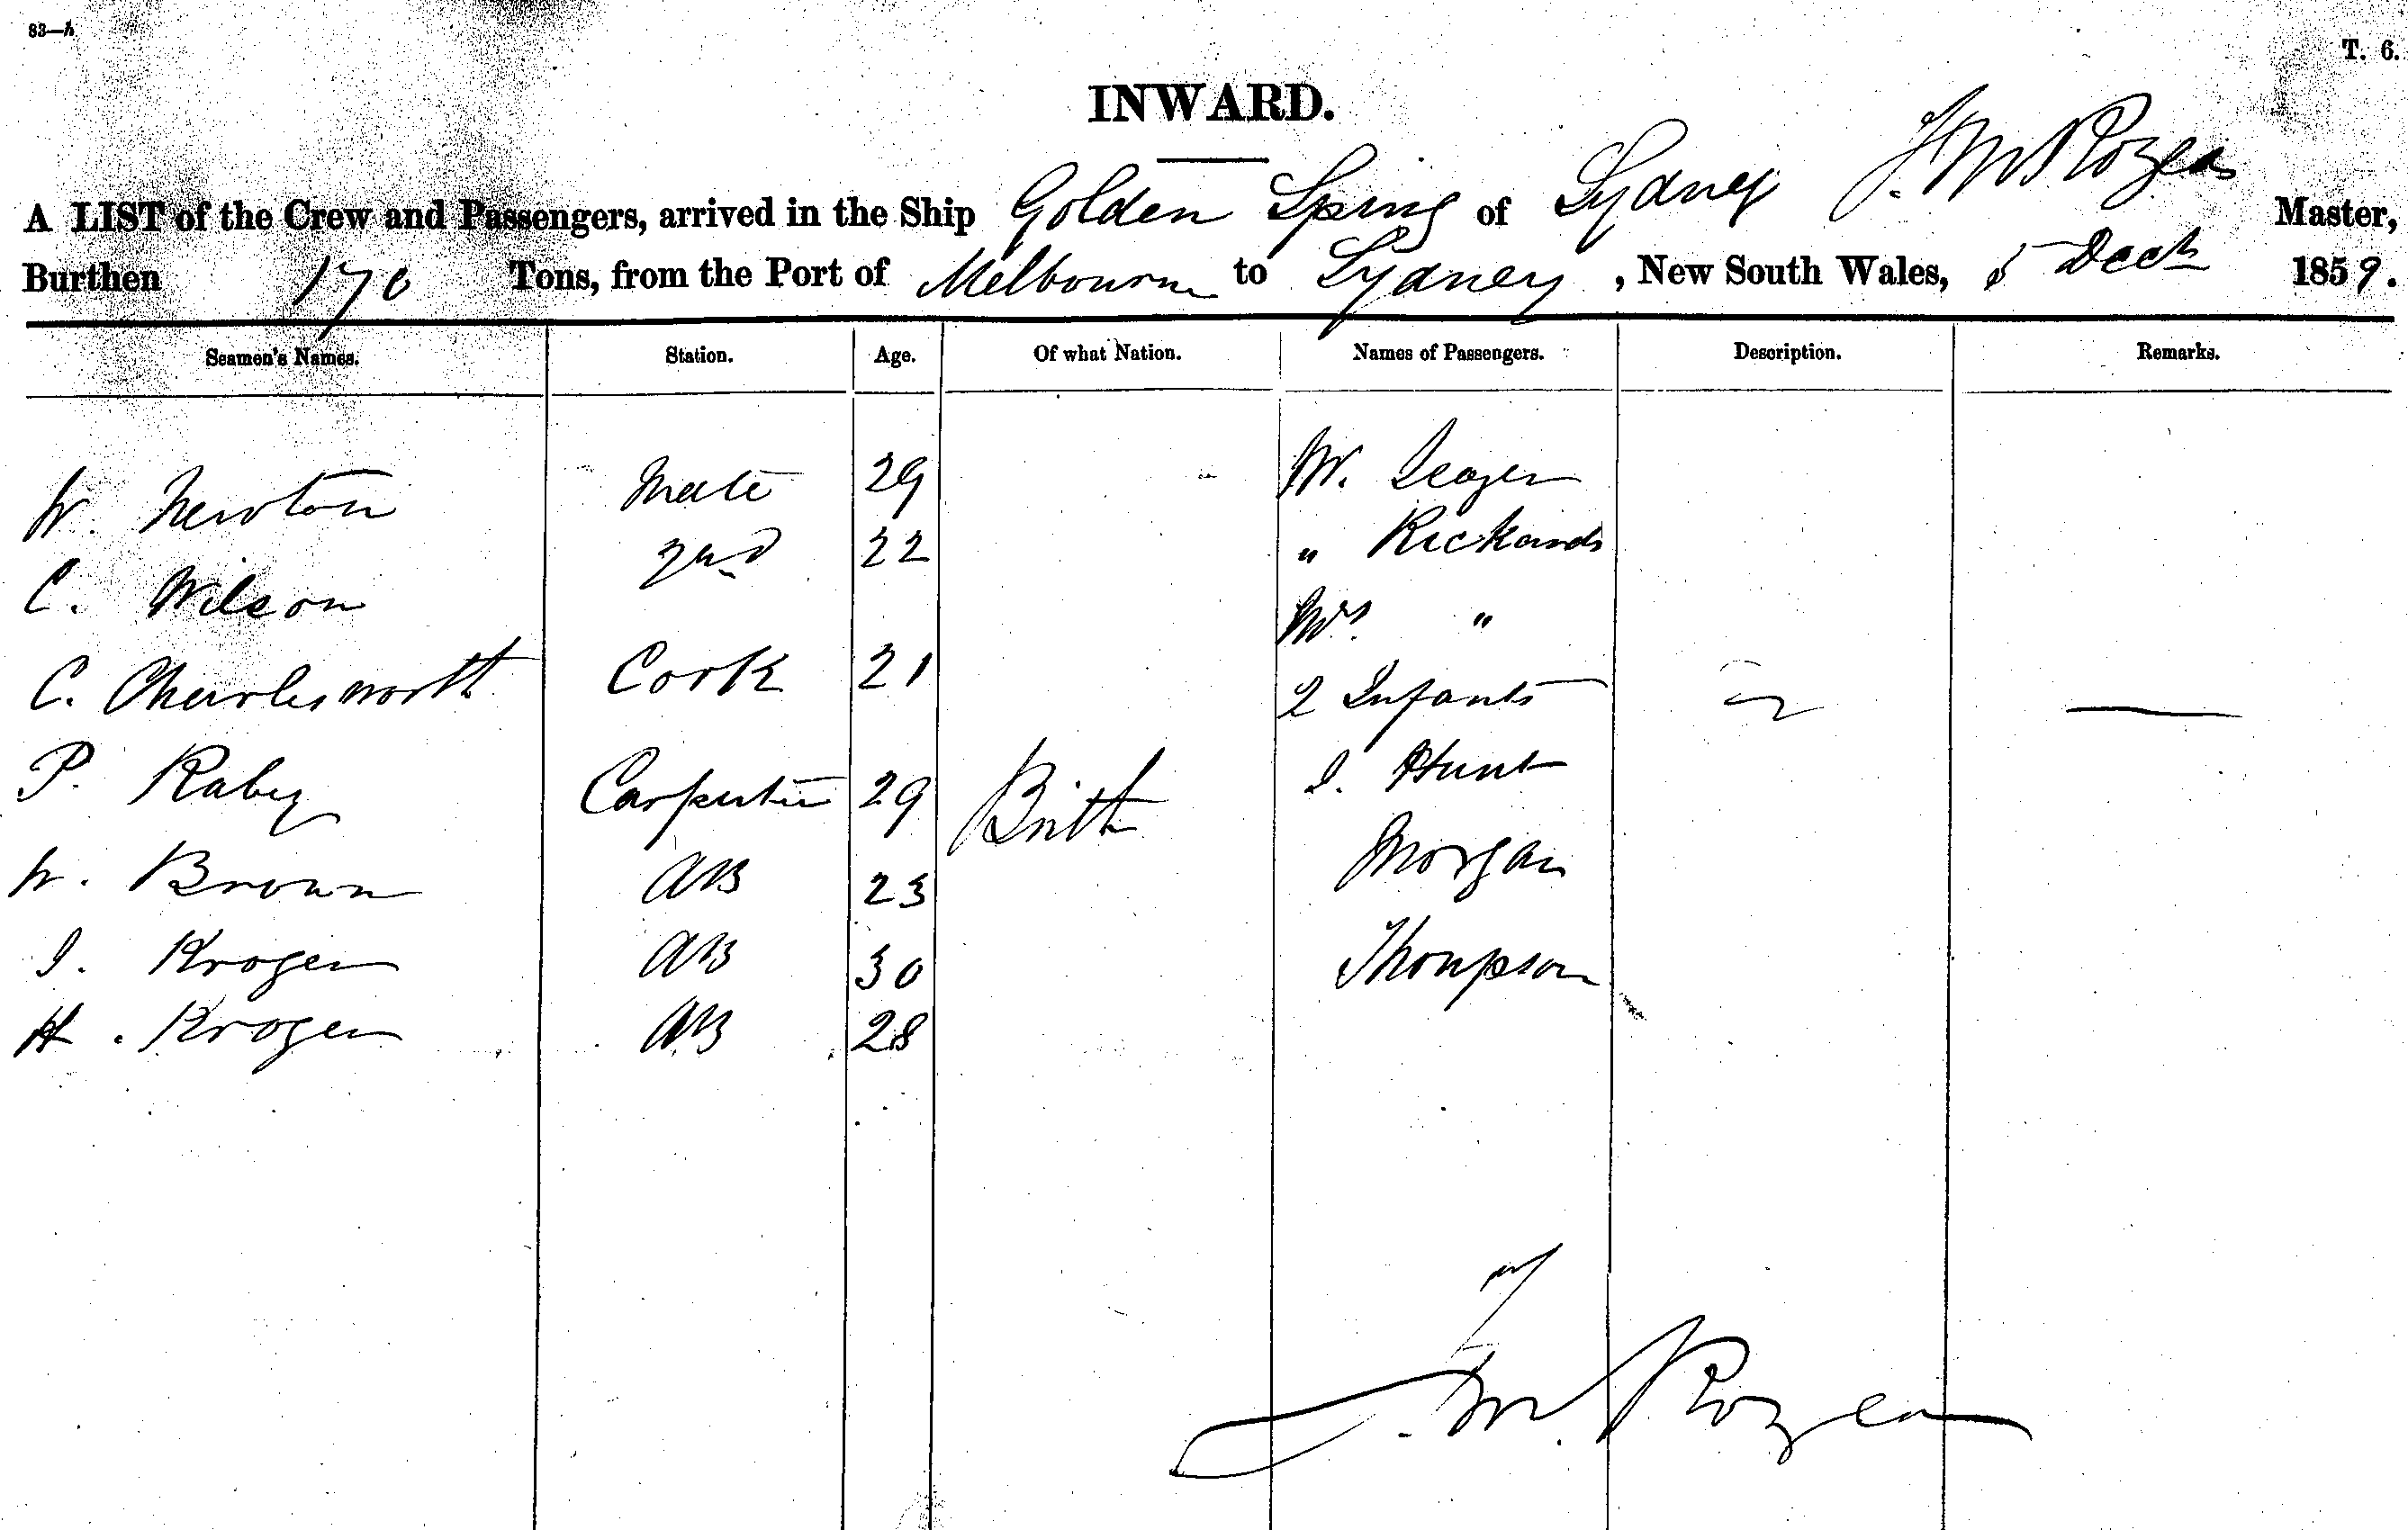 83—h
T. 6.
INWARD.
A LIST of the Crew and Passengers, arrived in the Ship Golden Spring of Sydney Master,
Burthen 170 Tons, from the Port of Melbourne to Sydney, New South Wales, 5 Decr 1859.
Seamen's Names. Station. Age. Of what Nation. Names of Passengers. Description. Remarks.
W. Newton Mate 29 Mr.
C. Wilson 2nd 22 " Rickards
Mrs "
C. Charlesworth Cook 21 2 Infants
P. Raby Carpenter 29 British J. Hunt
W. Brown AB 23 Morgan
J. Kroger AB 30 Thompson
H. Kroger AB 28